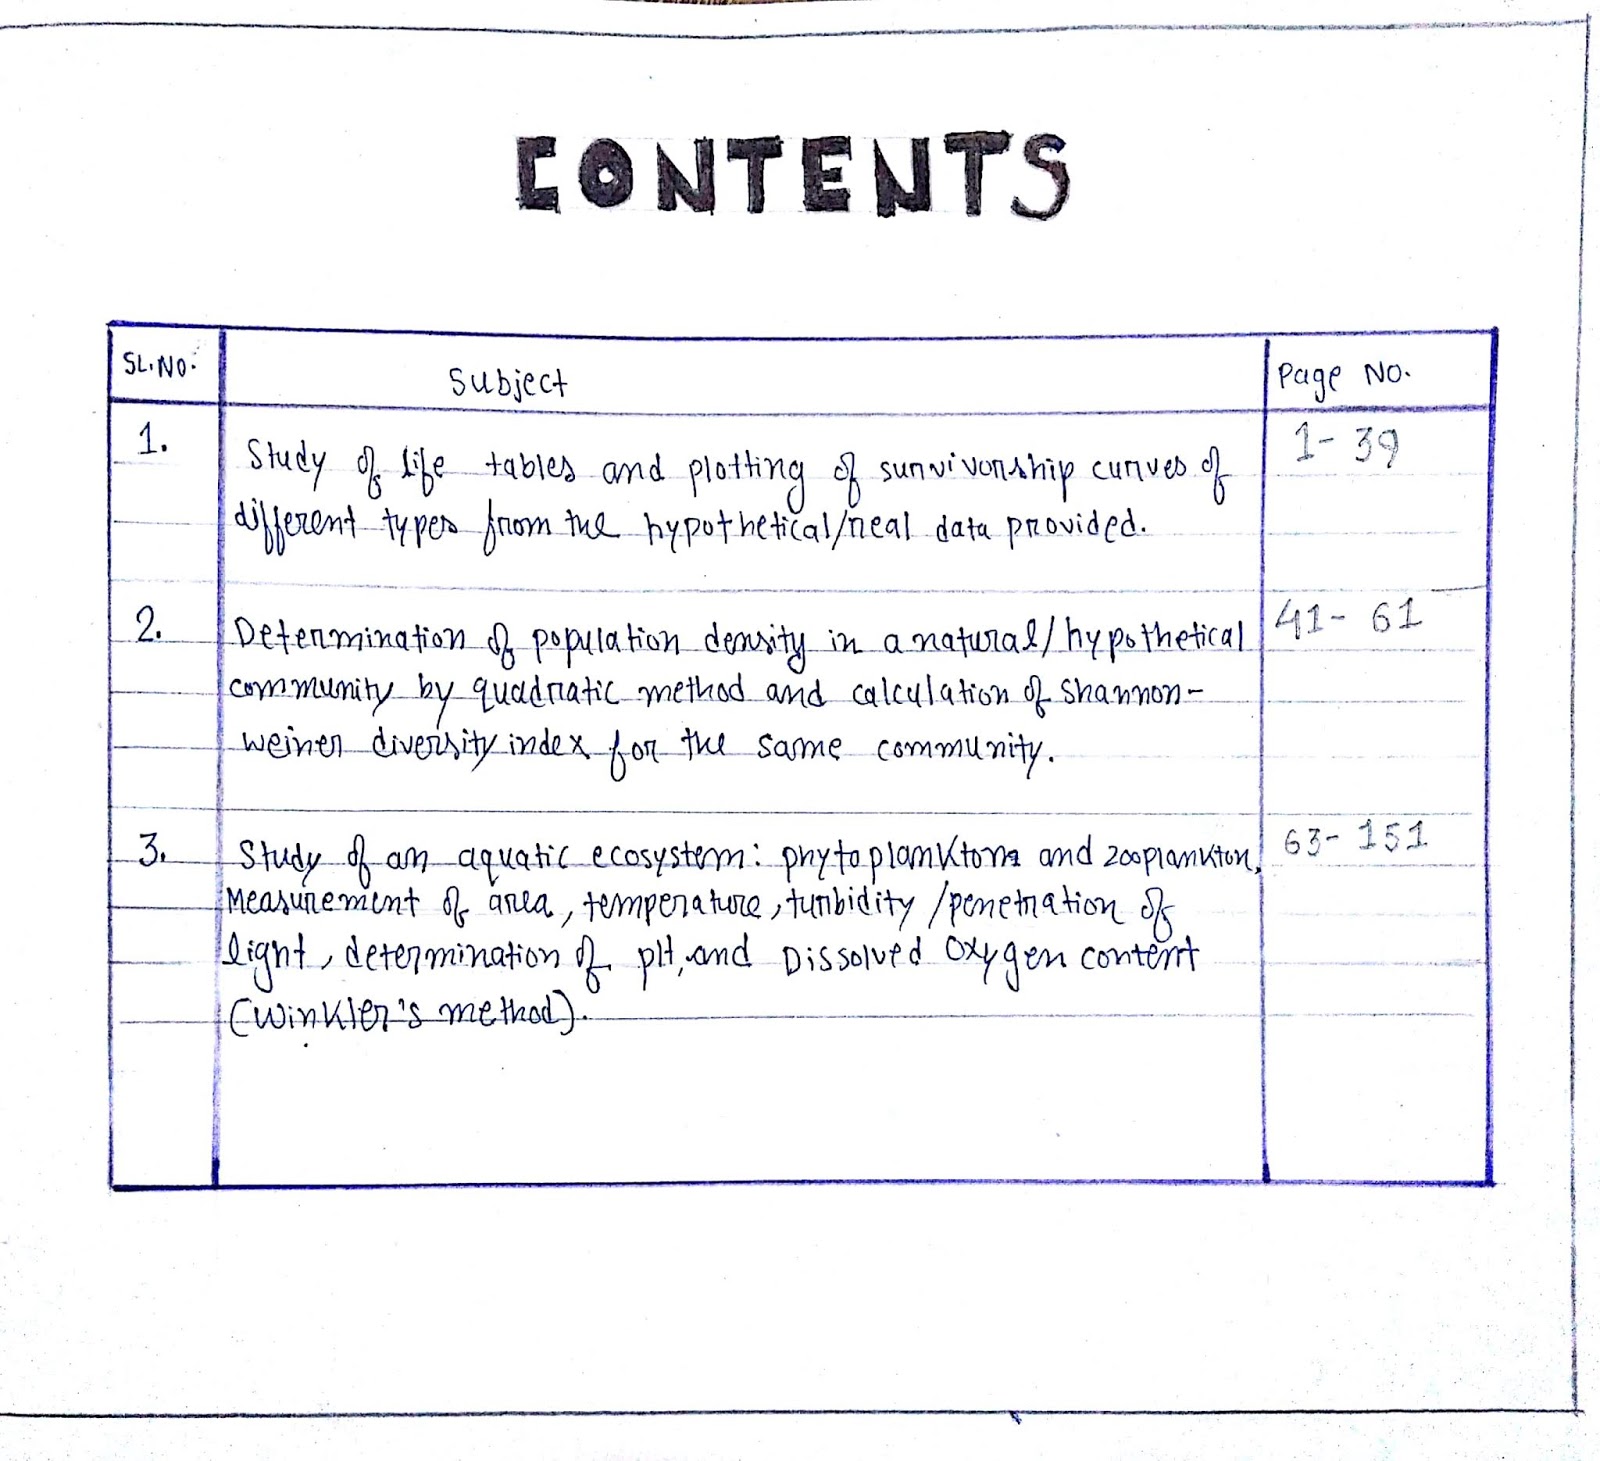 CONTENTS
SL.NO. Subject Page No.
1. Study of life tables and plotting of survivorship curves of 1- 39
different types from the hypothetical/real data provided.
2. Determination of population density in a natural/hypothetical 41- 61
community by quadratic method and calculation of Shannon-
weiner diversity index for the same community.
3. Study of an aquatic ecosystem: phytoplanktons and zooplankton, 63- 151
Measurement of area, temperature, turbidity/penetration of
light, determination of pH, and Dissolved Oxygen content
(Winkler's method).